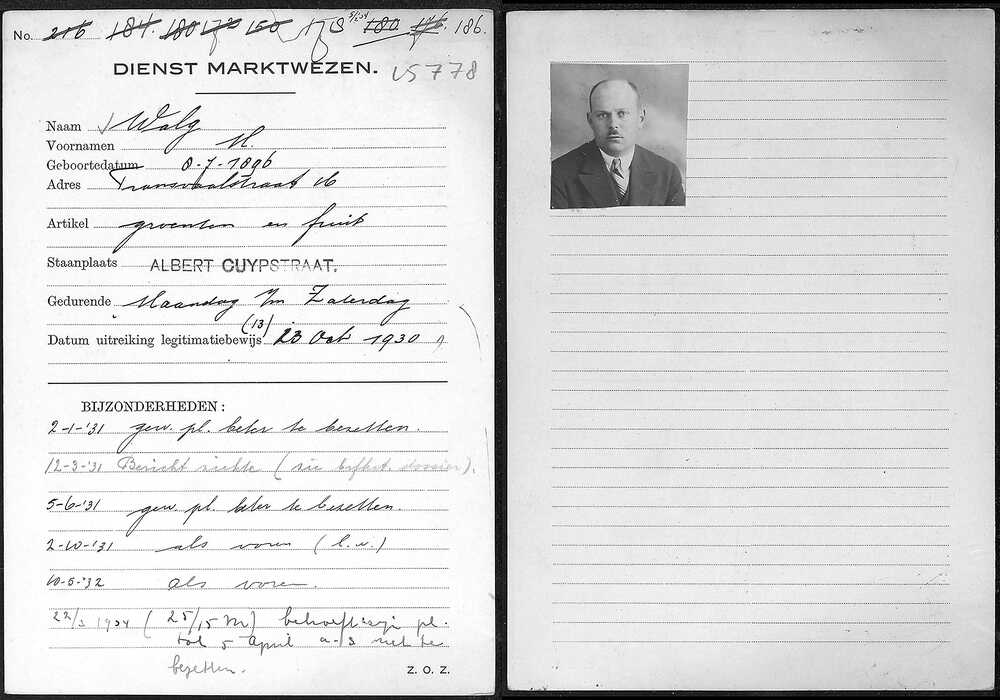 No. 216 184. 180 172 150 178 5/2 31 180 176. 186.
DIENST MARKTWEZEN. 45778
Naam Walg
Voornamen M.
Geboortedatum 8-7-1896
Adres Transvaalstraat 16
Artikel groenten en fruit
Staanplaats ALBERT CUYPSTRAAT.
Gedurende Maandag t/m Zaterdag
(13)
Datum uitreiking legitimatiebewijs 23 Oct 1930
BIJZONDERHEDEN:
2-1-'31 gew. pl. beter te bezetten.
12-3-'31 Bericht ziekte (zie dossier).
5-6-'31 gew. pl. beter te bezetten.
2-10-'31 als voren (l.w.)
10-5-'32 als voren.
22/3 1934 (25/15 M) behoeft zijn pl.
tot 5 April a.s niet te
bezetten.
Z. O. Z.